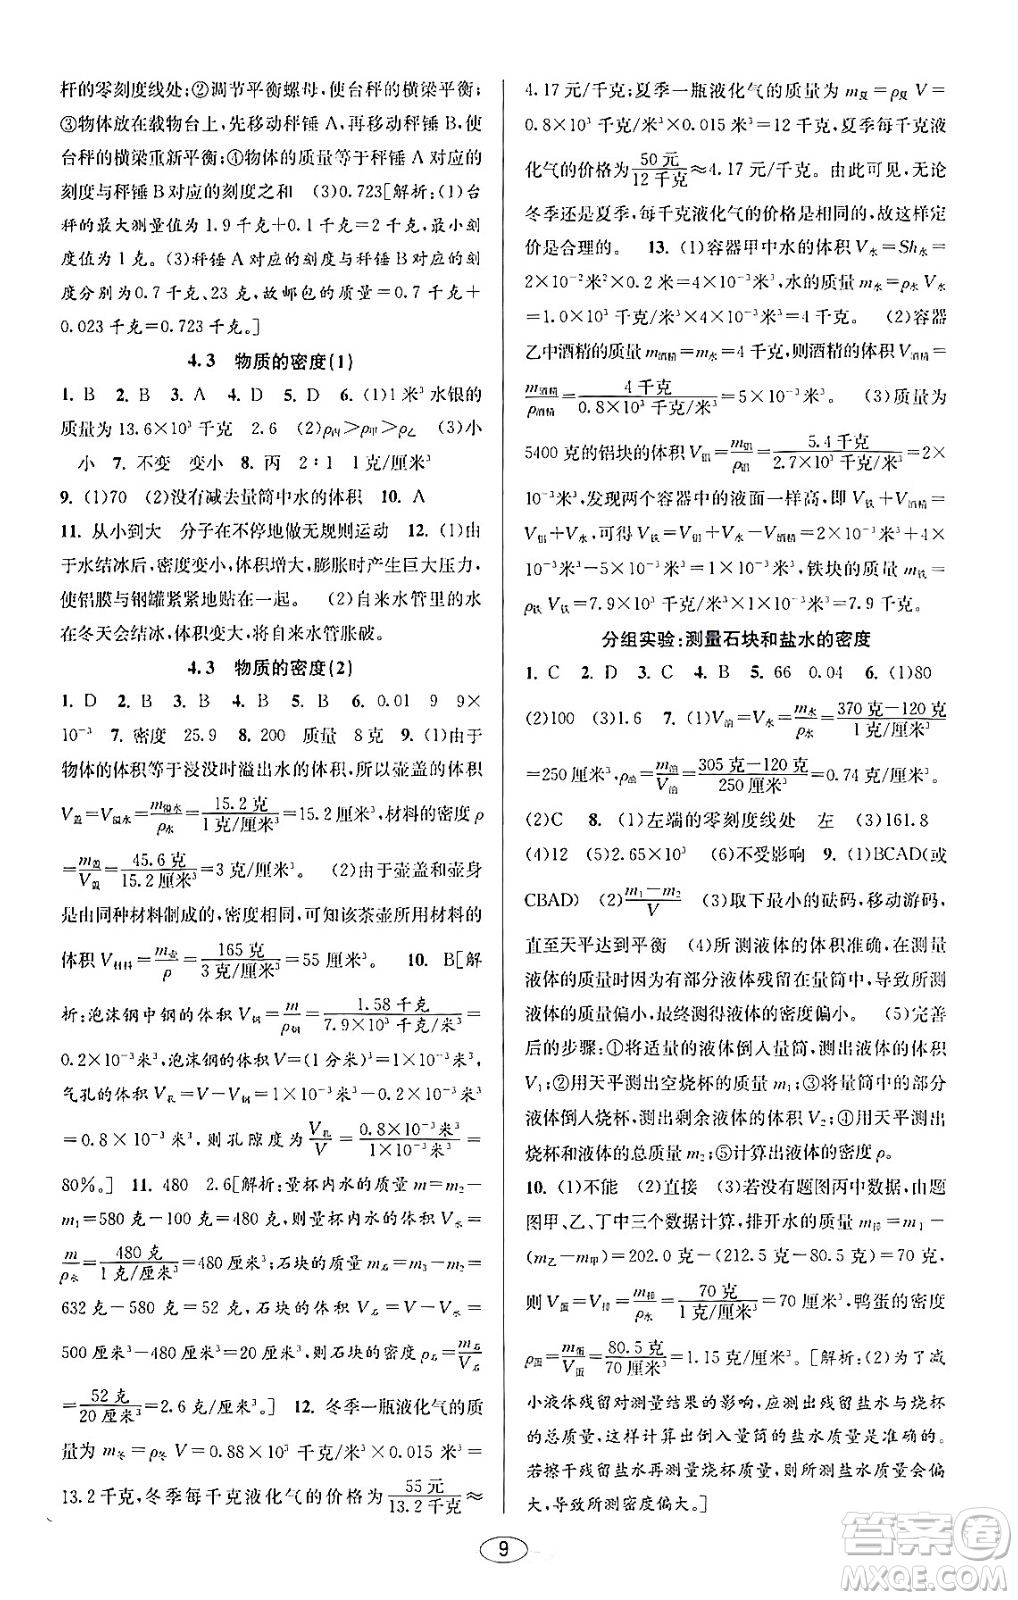 杆的零刻度线处;②调节平衡螺母,使台秤的横梁平衡;
③物体放在载物台上,先移动秤锤 A,再移动秤锤 B,使
台秤的横梁重新平衡;④物体的质量等于秤锤 A 对应的
刻度与秤锤 B 对应的刻度之和 (3)0.723[解析:(1)台
秤的最大测量值为 1.9 千克+0.1 千克=2 千克,分度
值为 1 克。(3)秤锤 A 对应的刻度与秤锤 B 对应的刻
度分别为 0.7 千克、23 克,故邮包的质量=0.7 千克+
0.023 千克=0.723 千克。]
4.3 物质的密度(1)
1. B 2. B 3. A 4. D 5. D 6. (1)1米³水银的
质量为 13.6×10³ 千克 2.6 (2)ρ丙>ρ甲>ρ乙 (3)小
小 7. 不变 变小 8. 丙 2∶1 1克/厘米³
9. (1)70 (2)没有减去量筒中水的体积 10. A
11. 从小到大 分子在不停地做无规则运动 12. (1)由
于水结冰时,密度变小,体积增大,膨胀时产生巨大压力,
使铝膜与钢罐紧紧地贴在一起。 (2)自来水管里的水
在冬天会结冰,体积变大,将自来水管胀破。
4.3 物质的密度(2)
1. D 2. B 3. B 4. B 5. B 6. 0.01 9 9×
10⁻³ 7. 密度 25.9 8. 200 质量 8克 9. (1)由于
物体的体积等于浸没时溢出水的体积,所以壶盖的体积
V盖=V溢水=m溢水/ρ水=15.2 克/1 克/厘米³=15.2 厘米³,材料的密度 ρ
=m盖/V盖=45.6 克/15.2 厘米³=3 克/厘米³。 (2)由于壶盖和壶身
是由同种材料制成的,密度相同,可知该茶壶所用材料的
体积 V材料=m壶/ρ=165 克/3 克/厘米³=55 厘米³。 10. B[解
析:泡沫钢中钢的体积 V钢=m/ρ钢=1.58 千克/7.9×10³ 千克/米³=
0.2×10⁻³米³,泡沫钢的体积 V=(1 分米)³=1×10⁻³米³,
气孔的体积为 V孔=V-V钢=1×10⁻³米³-0.2×10⁻³米³
=0.8×10⁻³米³,则孔隙度为 V孔/V=0.8×10⁻³米³/1×10⁻³米³=
80%。] 11. 480 2.6[解析:量杯内水的质量 m=m₂-
m₁=580 克-100 克=480 克,则量杯内水的体积 V水=
m/ρ水=480 克/1 克/厘米³=480 厘米³;石块的质量 m石=m₃-m₂=
632 克-580 克=52 克,石块的体积 V石=V-V水=
500 厘米³-480 厘米³=20 厘米³,则石块的密度 ρ石=m石/V石
=52 克/20 厘米³=2.6 克/厘米³。] 12. 冬季一瓶液化气的质
量为 m冬=ρ冬 V=0.88×10³ 千克/米³×0.015 米³=
13.2 千克,冬季每千克液化气的价格为 55 元/13.2 千克≈
4.17 元/千克;夏季一瓶液化气的质量为 m夏=ρ夏 V=
0.8×10³ 千克/米³×0.015 米³=12 千克,夏季每千克液
化气的价格为 50 元/12 千克≈4.17 元/千克。由此可见,无论
冬季还是夏季,每千克液化气的价格是相等的,这样定
价是合理的。 13. (1)容器甲中水的体积 V水=Sh水=
2×10⁻²米²×0.2 米=4×10⁻³米³,水的质量 m水=ρ水V水
=1.0×10³ 千克/米³×4×10⁻³米³=4 千克。 (2)容器
乙中酒精的质量 m酒精=m水=4 千克,则酒精的体积 V酒精=
m酒精/ρ酒精=4 千克/0.8×10³ 千克/米³=5×10⁻³米³。 (3)质量为
5400 克的铝块的体积 V铝=m铝/ρ铝=5.4 千克/2.7×10³ 千克/米³=2×
10⁻³米³,发现两个容器中的液面一样高,即 V铁+V酒精=
V铝+V水,可得 V铁=V铝+V水-V酒精=2×10⁻³米³+4×
10⁻³米³-5×10⁻³米³=1×10⁻³米³,铁块的质量 m铁=
ρ铁V铁=7.9×10³ 千克/米³×1×10⁻³米³=7.9 千克。
分组实验:测量石块和盐水的密度
1. C 2. D 3. C 4. B 5. 66 0.04 6. (1)80
(2)100 (3)1.6 7. (1)V油=V水=m水/ρ水=370 克-120 克/1 克/厘米³
=250 厘米³,ρ油=m油/V油=305 克-120 克/250 厘米³=0.74 克/厘米³。
(2)C 8. (1)左端的零刻度线处 左 (3)161.8
(4)12 (5)2.65×10³ (6)不受影响 9. (1)BCAD(或
CBAD) (2)m₁-m₂/V (3)加减较小的砝码,移动游码,
直至天平达到平衡 (4)所测液体的体积准确,在测量
液体的质量时,由于有部分液体残留在量筒中,导致所测
液体的质量偏小,最终测得液体的密度偏小。 (5)完善
后的步骤:①将适量的液体倒入量筒,测出液体的体积
V₁;②用天平测出空烧杯的质量 m₁;③将量筒中的部分
液体倒入烧杯,测出剩余液体的体积 V₂;④用天平测出
烧杯和液体的总质量 m₂;⑤计算出液体的密度 ρ。
10. (1)不能 (2)直接 (3)若没有题图丙中数据,由题
图甲、乙、丁中三个数据计算,排开水的质量 m排=m丁-
(m乙-m甲)=202.0 克-(212.5 克-80.5 克)=70 克,
则 V蛋=V排=m排/ρ水=70 克/1 克/厘米³=70 厘米³,鸭蛋的密度
ρ蛋=m蛋/V蛋=80.5 克/70 厘米³=1.15 克/厘米³。[解析:(2)为了减
小液体残留对测量结果的影响,应测出残留盐水与烧杯
的总质量,这样计算出倒入量筒的盐水质量是准确的。
若擦干残留盐水再测量烧杯质量,则所测盐水质量会偏
大,导致所测密度偏大。]
9
答案圈
MXQE.COM